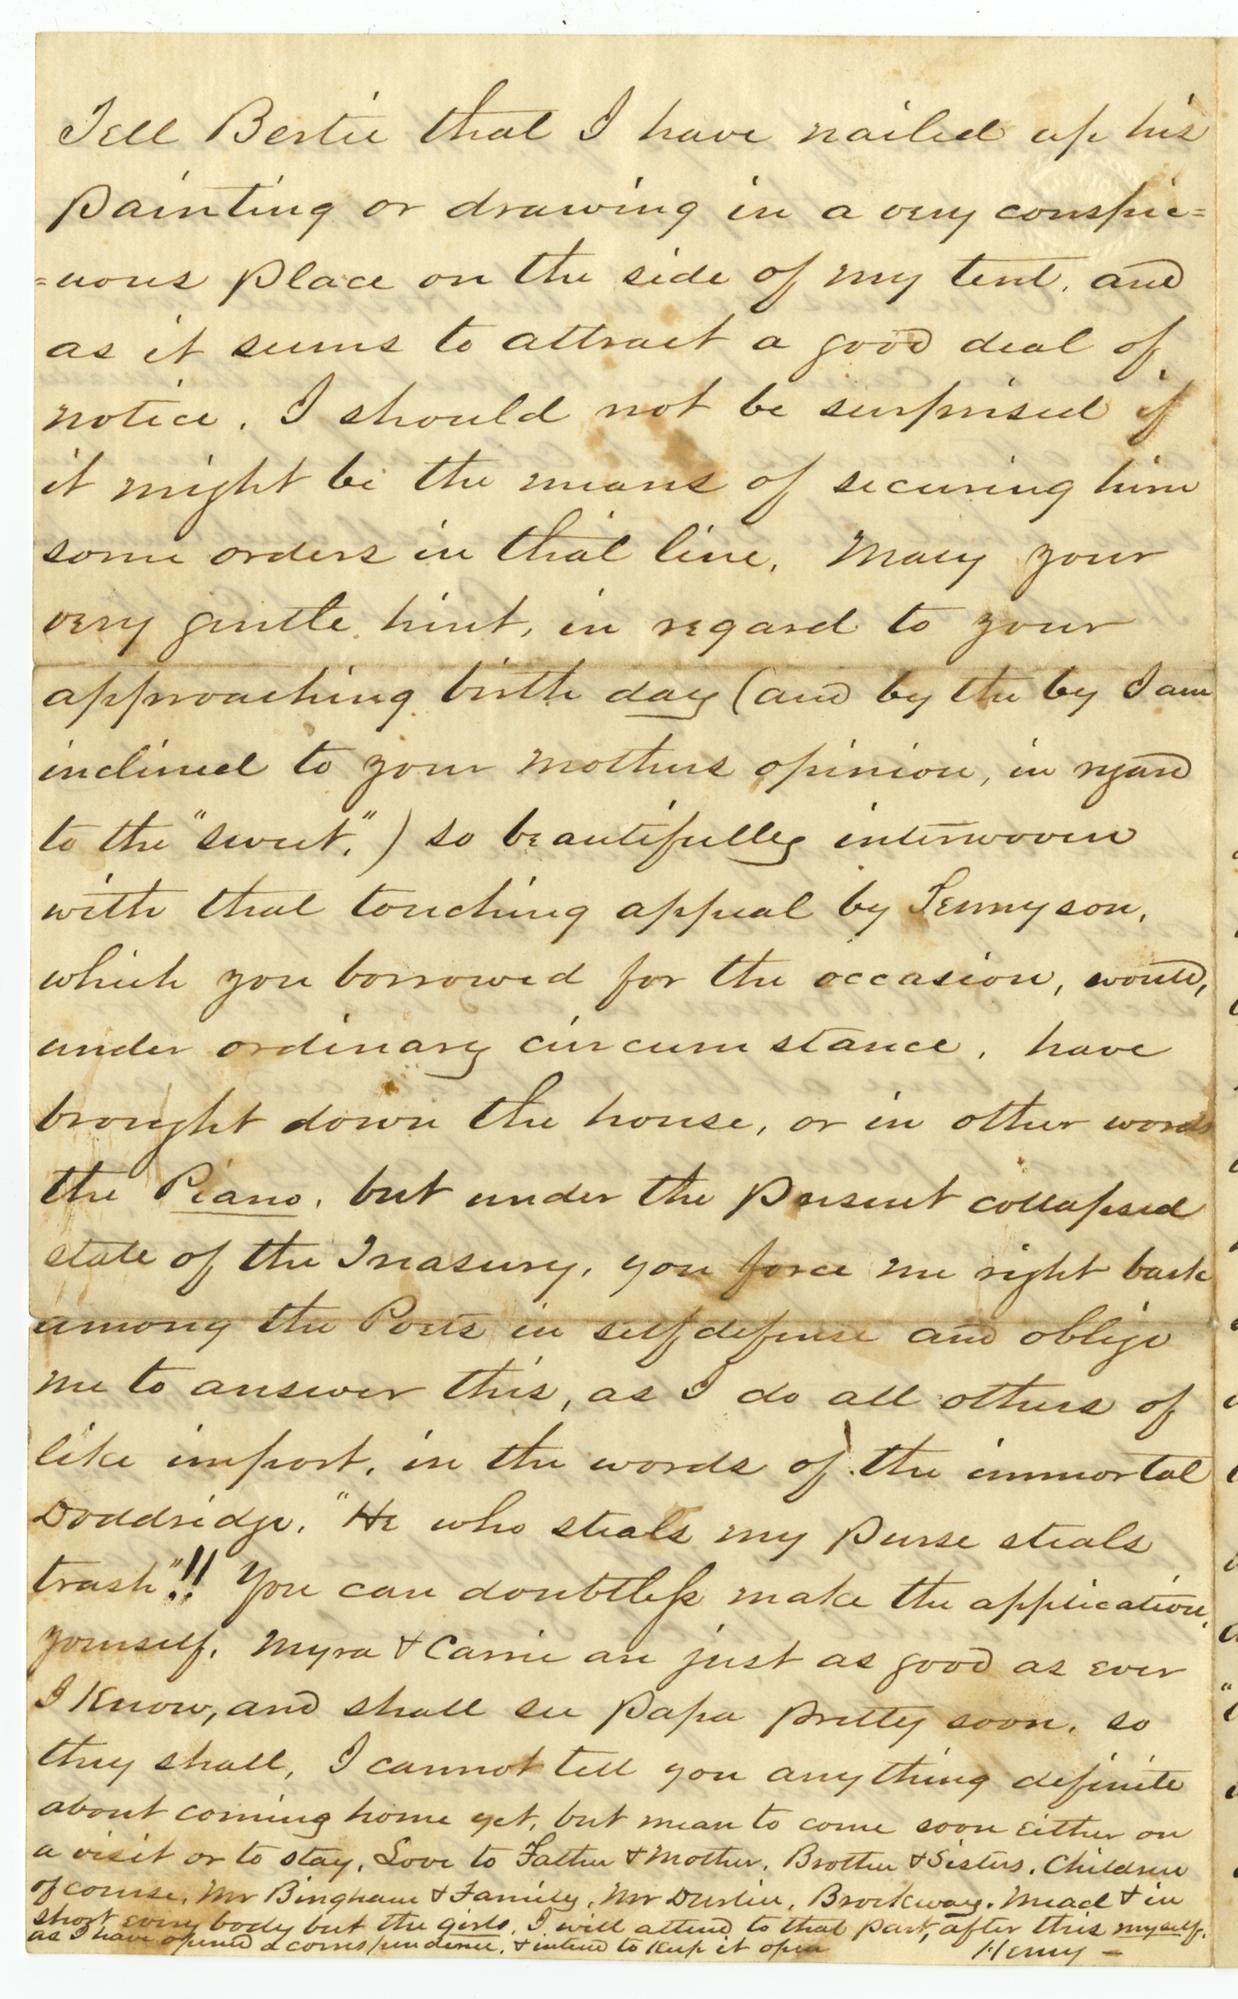 Tell Bertie that I have nailed up his
painting or drawing in a very conspic=
=uous place on the side of my tent, and
as it seems to attract a good deal of
notice, I should not be surprised if
it might be the means of securing him
some orders in that line. Mary your
very gentle hint, in regard to your
approaching birth day (and by the by I am
inclined to your mothers opinion, in regard
to the "sweet",) so beautifully interwoven
with that touching appeal by Tennyson,
which you borrowed for the occasion, would,
under ordinary circumstance, have
brought down the house, or in other words
the Piano, but under the present collapsed
state of the Treasury, you force me right back
among the Poets in selfdefense and oblige
me to answer this, as I do all others of
like import, in the words of the immortal
Doddridge. "He who steals my purse steals
trash"!! You can doubtless make the application
yourself. Myra & Carrie are just as good as ever
I know, and shall see Papa pretty soon, so
they shall, I cannot tell you anything definite
about coming home yet, but mean to come soon either on
a visit or to stay. Love to Father & Mother, Brother & Sisters, Children
of course, Mr Bingham & Family, Mr Durlin, Brockway, Mead & in
short every body but the girls, I will attend to that part, after this myself,
as I have opened a correspondence, & intend to keep it open Henry -